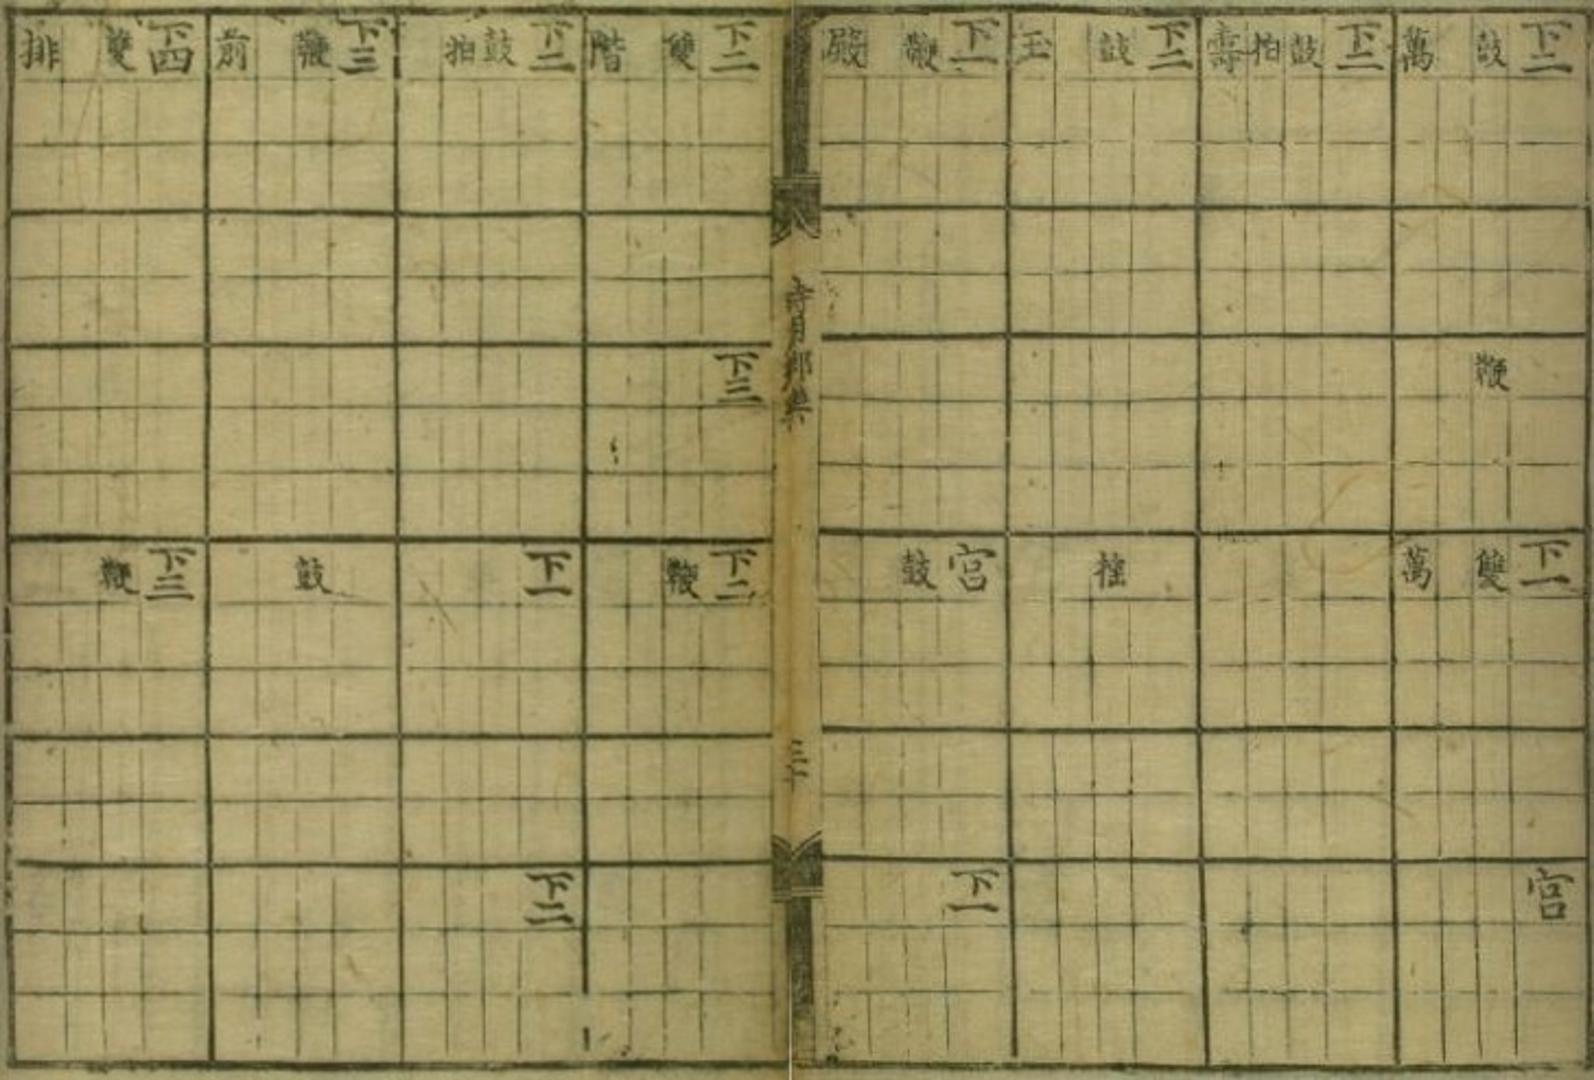 下二 下一 宮
鼓 鞭 雙
萬 萬
下二
鼓
拍
壽
下二
鼓 搖
玉
下一 宮 下一
鞭 鼓
殿
鄉樂
下二 下三 下二
雙 鞭
階
下二 下一 下二
鼓
拍
下三
鞭 鼓
前
下四 下三
雙 鞭
排